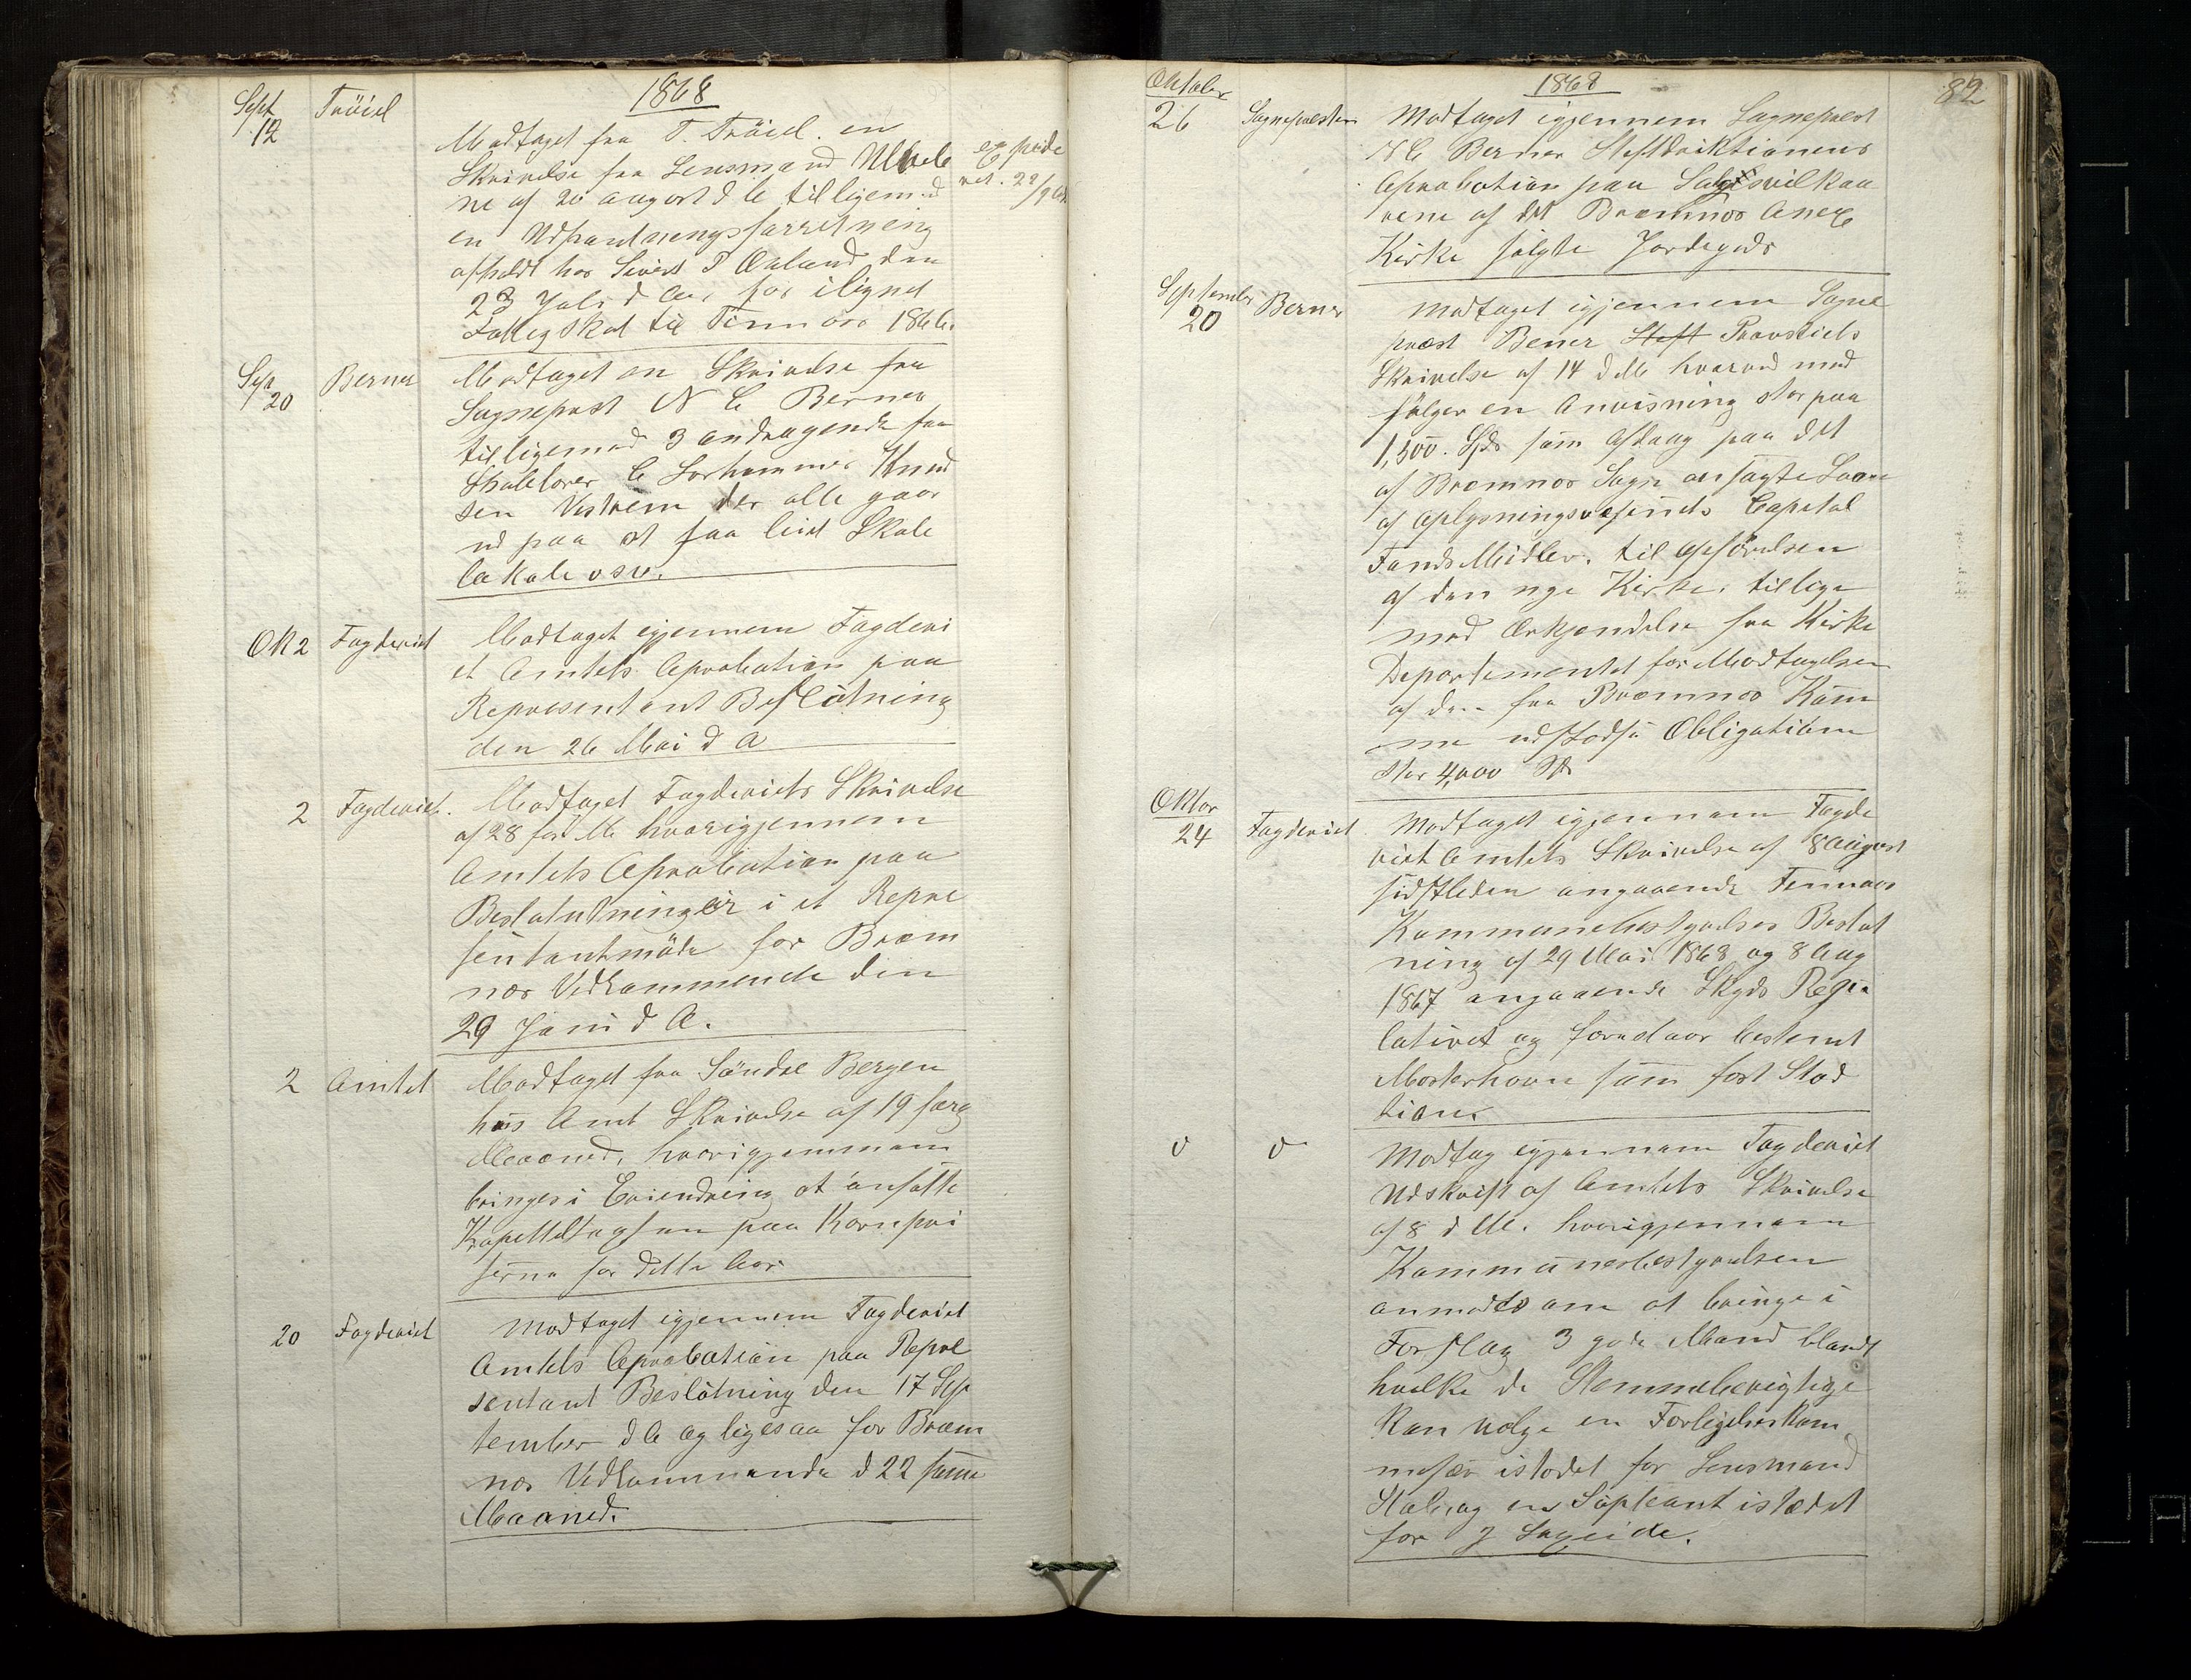 1868
Sept
12
Tröiel
Modtaget fra T. Tröiel. en
Skrivelse fra Lensmand
ne af 20 august d A tilligemed
en Udpantningsforretning
afholdt hos Sivert P Økland den
23 Juli d Aar for ilignet
Fattigskat til Finnaas 1866.
expede
ret. 29/9 68
Sep
20
Berner
Modtaget en Skrivelse fra
Sognepræst N C Berner
tilligemed 3 andragende fra
Skolelærer C Sorhammer Knud
sen Vestrem der alle gaar
ud paa at faa leiet Skole
lokale osv.
Okt 2
Fogderiet
Modtaget igjennem Fogderi
et Amtets Aprobation paa
Representant Beslötning
den 26 Mai d A
2
Fogderiet.
Modtaget Fogderiets Skrivelse
af 28 for. M. hvorigjennem
Amtets Aprobation paa
Beslutninger i et Repre
sentantmöde for Bræm
næs Vedkommende den
29 Juni d A.
2
Amtet
Modtaget fra Söndre Bergen
hus Amt Skrivelse af 19 forg
Maaned, hvorigjennem
bringes i Erindring at ansætte
Kapitelstagsten paa Kornpri
serne for dette Aar
20
Fogderiet
Modtaget igjennem Fogderiet
Amtets Aprobation paa Repre
sentant Beslötning den 17 Sep
tember d A og ligesaa for Bræm
næs Vedkommende d 22 samme
Maaned.
82
1868
Oktober
26
Sognepræsten
Modtaget igjennem Sognepræst
N C Berner Stiftdriktionens
Aprobation paa Salgsvilkaa
rene af det Bræmnæs Anex
Kirke solgte Jordegods
September
20
Berner
Modtaget igjennem Sogne
præst Bener Stift Provstiets
Skrivelse af 14 d M hvorved med
fölger en Anvisning stor paa
1,500. Spd som Afdrag paa det
af Bræmnæs Sogn ansøgte Laan
af Oplysningsvesenets Capital
Fonds Midler. til Opförelsen
af den nye Kirke. tillige
med Erkjendelse fra Kirke
Departementet for Modtagelsen
af den fra Bræmnæs Kom
mne udstedte Obligation
stor 4,000 Spd
Oktor
24
Fogderiet
Modtaget igjennem Fogde
riet Amtets Skrivelse af 8 August
sidstleden angaaende Finnaas
Kommunebestyrelses Beslut
ning af 29 Mai 1868 og 8 Aug
1867 angaaende Skyds Regu
lativet og forudaar bestemt
Mosterhavn som fast Stad
tion.
Modtag igjennem Fogderiet
Udskrift af Amtets Skrivelse
af 8 d M. hvorigjennem
Kommunesbestyrelsen
anmodes om at bringe i
Forslag 3 gode Mand blandt
hvilke de Stemmeberigtige
kan vælge en Forligelseskom
misær istedet for Lensmand
og en Supleant istædet
for J